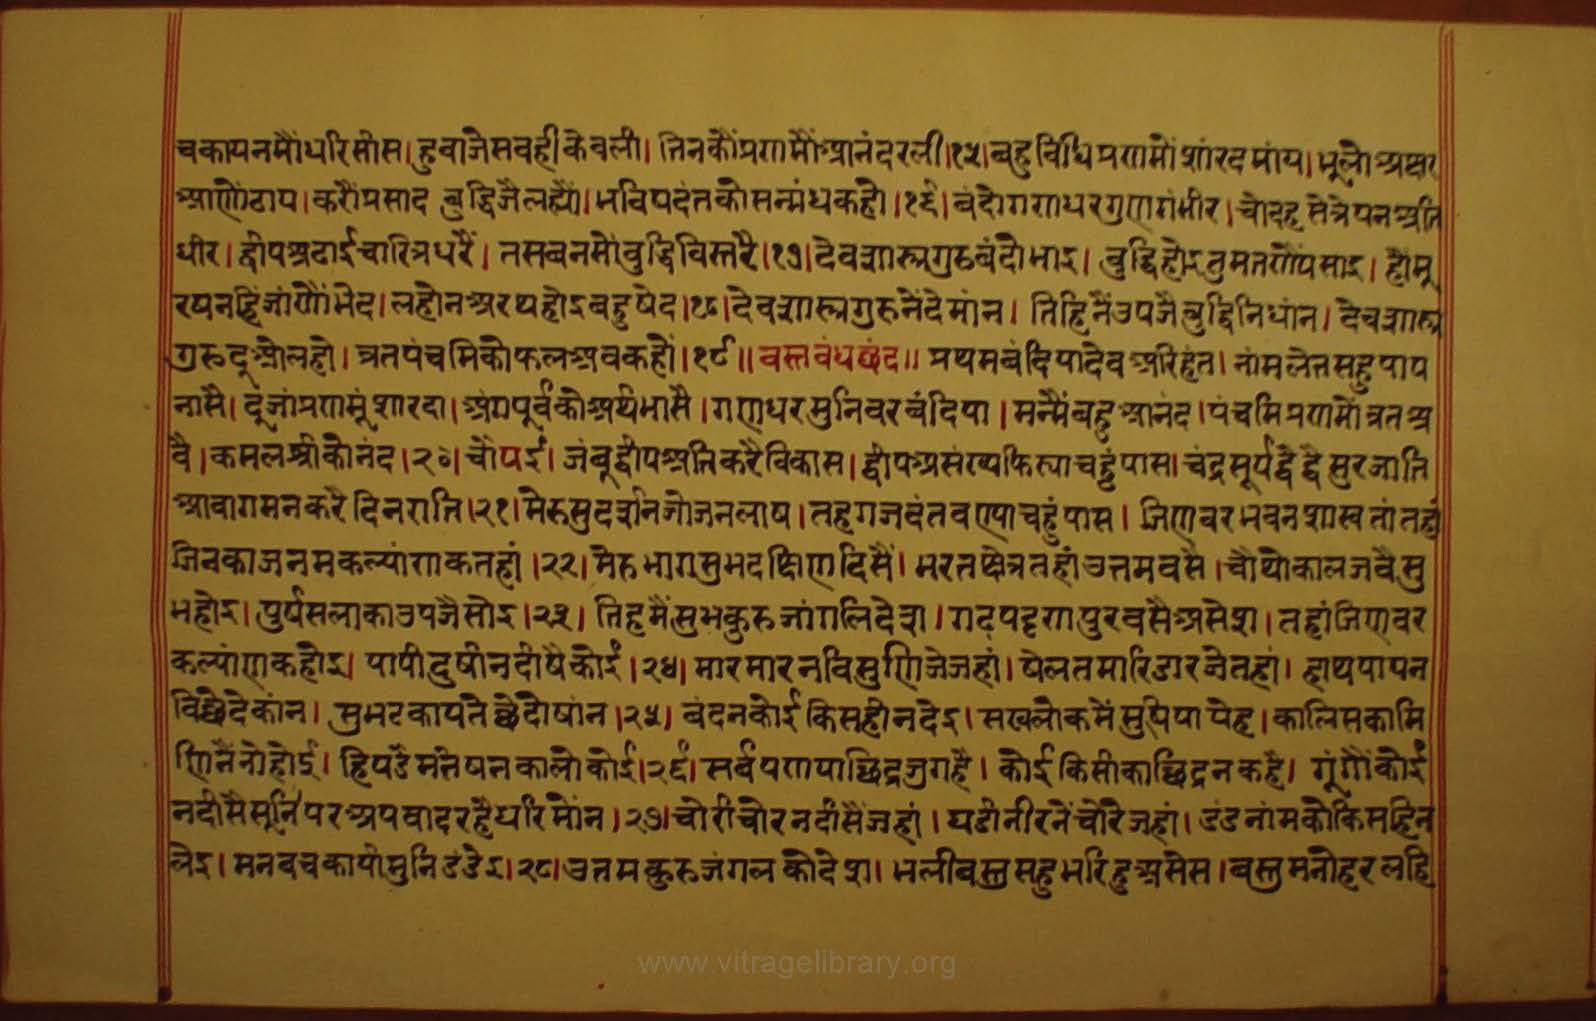 चकायनमौंधरिसीस। हुवाजेसवहीकेवली। तिनकौंप्रणमौंआनंदरली।१५। बहुविधिप्रणमौंशारदमांय। भूलोअक्षर
आणेंठाय। करौंप्रसाद बुद्धिजैलह्यौं। भविषदंतकोसन्मंधकहौ।१६। बंदोगणधरगुणगंभीर। चोदहसेत्रेपनअति
धीर। द्वीपअढाईचारित्रधरैं। तसबनमौंबुद्धिविस्तरै।१७। देवशास्त्रगुरुबंदोभाइ। बुद्धिहोइतुमतणौंपसाइ। हौंमू
रषनहिंजांणौंभेद। लहोनअरथहोइबहुषेद।१८। देवशास्त्रगुरुनेंदेमांन। तिहिनैंउपजैबुद्धिनिधांन। देवशास्त्र
गुरुदूओलहो। व्रतपंचमिकोफलअवकहौं।१९॥ वस्तबंधछंद॥ प्रथमबंदिपादेवअरिहंत। नांमलेतसहुपाप
नासै। दूजांप्रणमूंशारदा। अंगपूर्वकोअर्थभासै। गणधरमुनिवरबंदिपा। मन्मैंबहुआनंद। पंचमिप्रणमौंव्रतअ
वै। कमलश्रीकोनंद।२०। चौपई। जंबूद्वीपअतिकरैविकास। द्वीपअसंख्यफित्याचहुंपास। चंद्रसूर्यद्वैद्वैसुरजाति
आवागमनकरैदिनराति।२१। मेरुसुदर्शनजोजनलाष। तहगजदंतवण्याचहुंपास। जिणवरभवनशास्वतांतहां
जिनकाजनमकल्यांणकतहां।२२। मेरुभागसुभदक्षिणदिसैं। भरतक्षेत्रतहांउत्तमवसै। चौथोकालजवैसु
भहोइ। पुर्षसलाकाउपजैसोइ।२३। तिहमैंसुभकुरुजांगलिदेश। गढपट्टणपुरवसैअसेश। तहांजिणवर
कल्यांणकहोइ। पापीदुषीनदीषैकोई।२४। मारमारनविसुणिजेजहां। षेलतमारिडारजेतहां। हाथपायन
विछेदेकांन। सुभटकायतेछेदेषांन।२५। बंदनकोईकिसहीनदेइ। सखलोकमेंसुषियापेह। कालिसकामि
णिनैंनोहोई। हियडैमंतेषनकालोकोई।२६। सर्वपणायाछिद्रजुगहै। कोईकिसीकाछिद्रनकहै। गूंगौंकोई
नदीसैसूनि परअपवादरहैधरिमौंन।२७। चोरीचोरनदीसैंजहां। घडीनीरनेंचोरेजहां। डंडनांमकोकिसहिन
लेइ। मनवचकायामुनिडंडेइ।२८। उतमकुरुजंगलकोदेश। भलीबस्तुसहुभरिहुअसेस। बस्तुमनोहरलहि
www.vitragelibrary.org